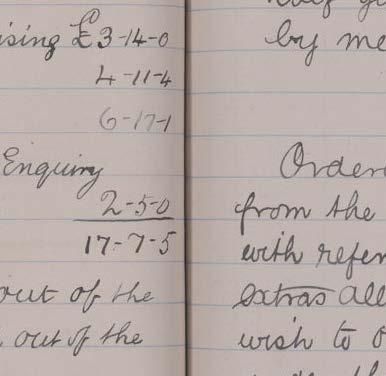 ising £3-14-0
4-11-4
6-17-1
Enquiry
2-5-0
17-7-5
out of the
out of the
half
by me
Ordere
from the
with refer
extras all
wish to o